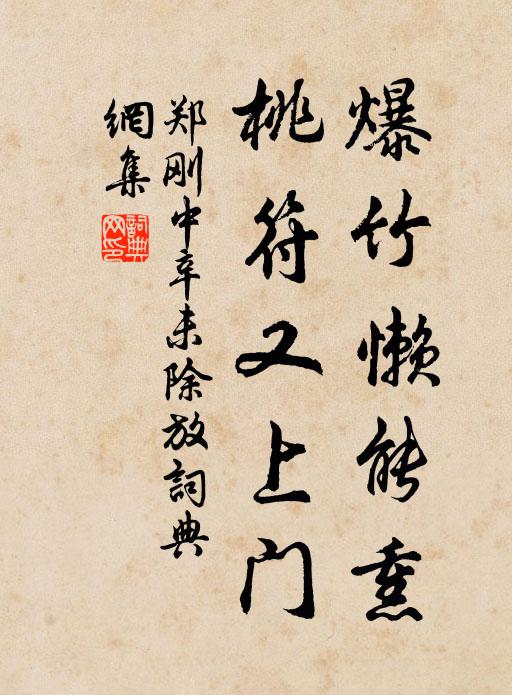 爆竹懒能熏
桃符又上门
郑刚中辛未除放詞典
網集
詞典网印